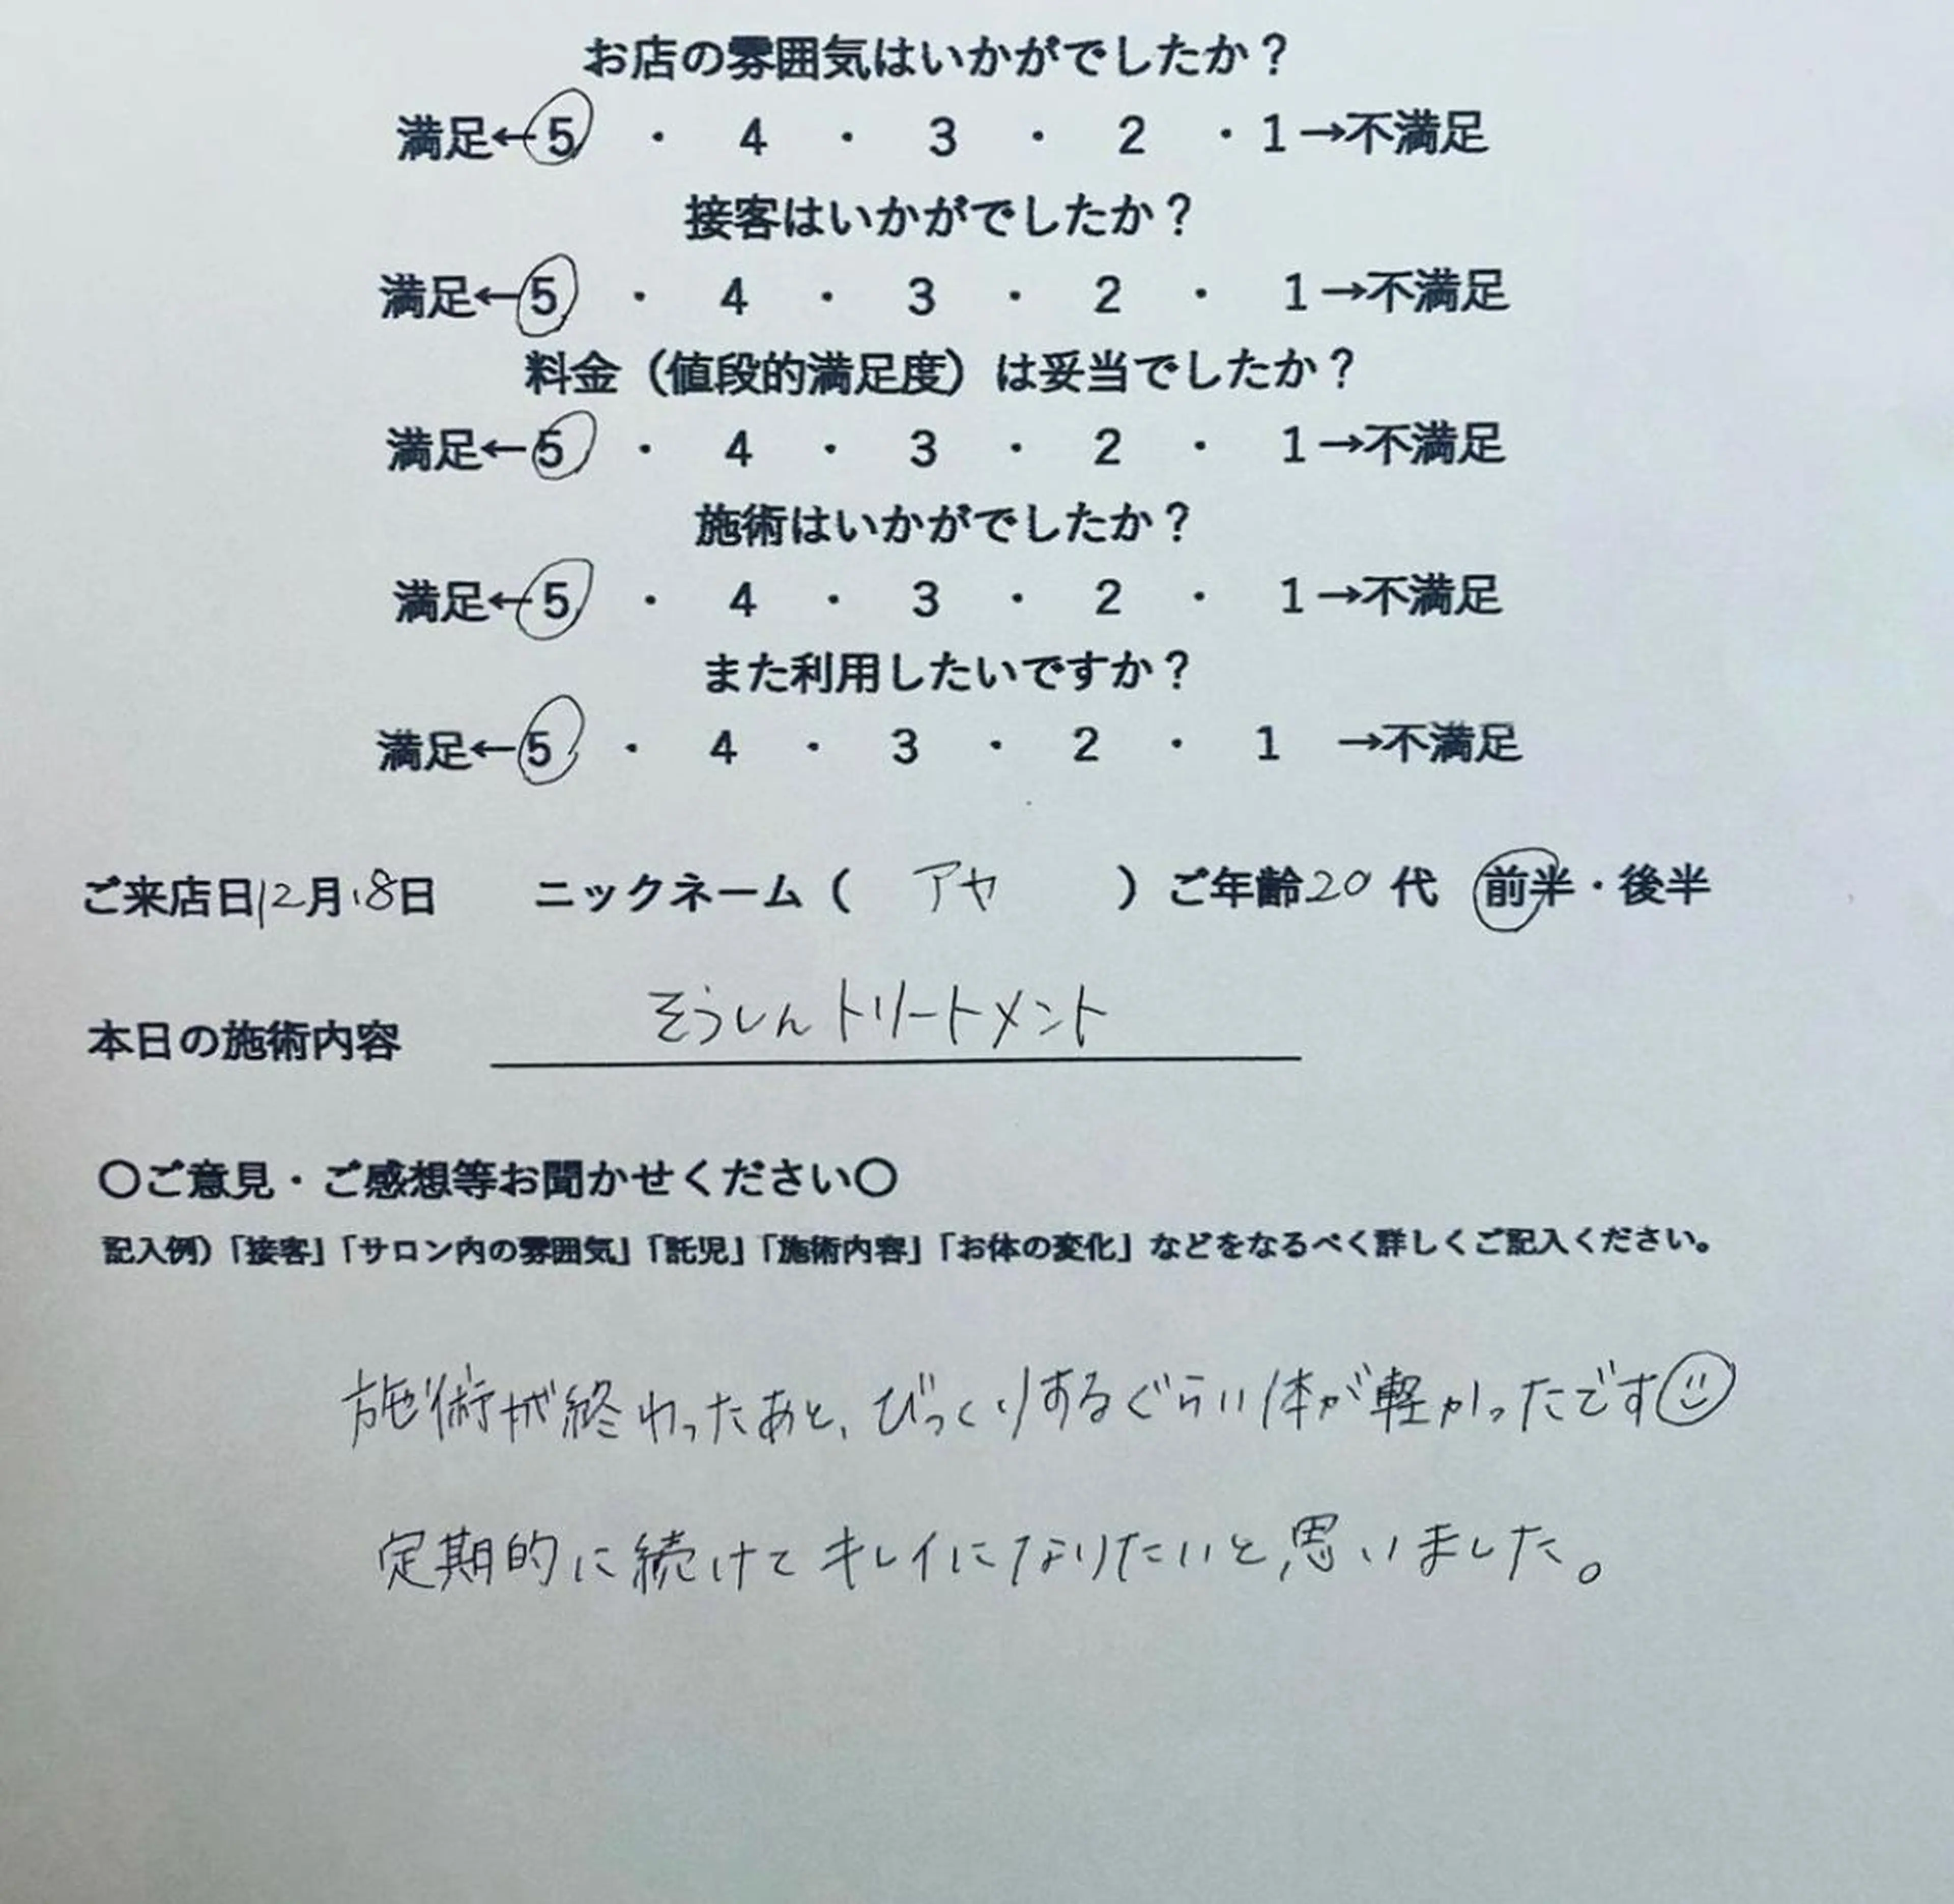 お店の雰囲気はいかがでしたか？
満足←5 ・ 4 ・ 3 ・ 2 ・1→不満足
接客はいかがでしたか？
満足←5 ・ 4 ・ 3 ・ 2 ・ 1→不満足
料金（値段的満足度）は妥当でしたか？
満足←5 ・ 4 ・ 3 ・ 2 ・ 1→不満足
施術はいかがでしたか？
満足←5 ・ 4 ・ 3 ・ 2 ・ 1→不満足
また利用したいですか？
満足←5 ・ 4 ・ 3 ・ 2 ・ 1 →不満足
ご来店日12月18日 ニックネーム（ アヤ ）ご年齢20代 前半・後半
本日の施術内容 そうしんトリートメント
〇ご意見・ご感想等お聞かせください〇
記入例）「接客」「サロン内の雰囲気」「託児」「施術内容」「お体の変化」などをなるべく詳しくご記入ください。
施術が終わったあと、びっくりするぐらい体が軽かったです☺
定期的に続けてキレイになりたいと思いました。